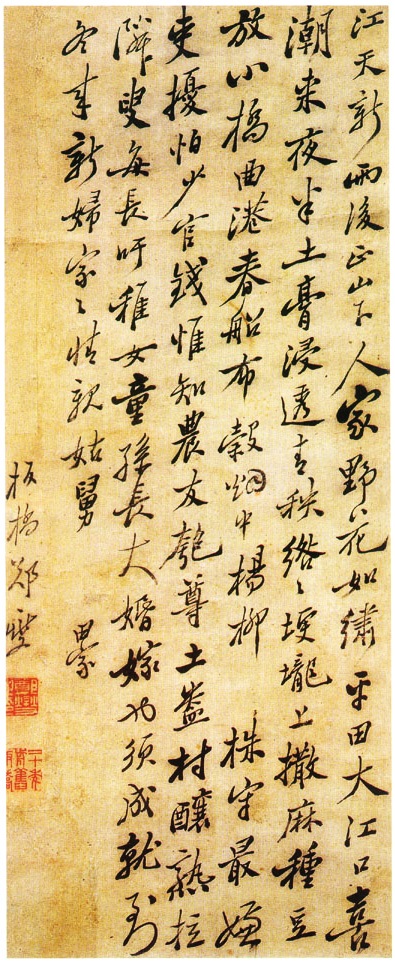 江天新雨後正山下人家野花如繡平田大江口喜
潮来夜半土膏浸透青秧絡々埂壠上撒麻種豆
放小橋曲港春船布穀烟中楊柳　株守最嫌
吏擾怕少官錢惟知農友匏尊土盎村釀熟拉
隣叟每長吁稚女童孫長大婚嫁也須成就到
冬来新婦家々情親姑舅
田家
板橋鄭燮